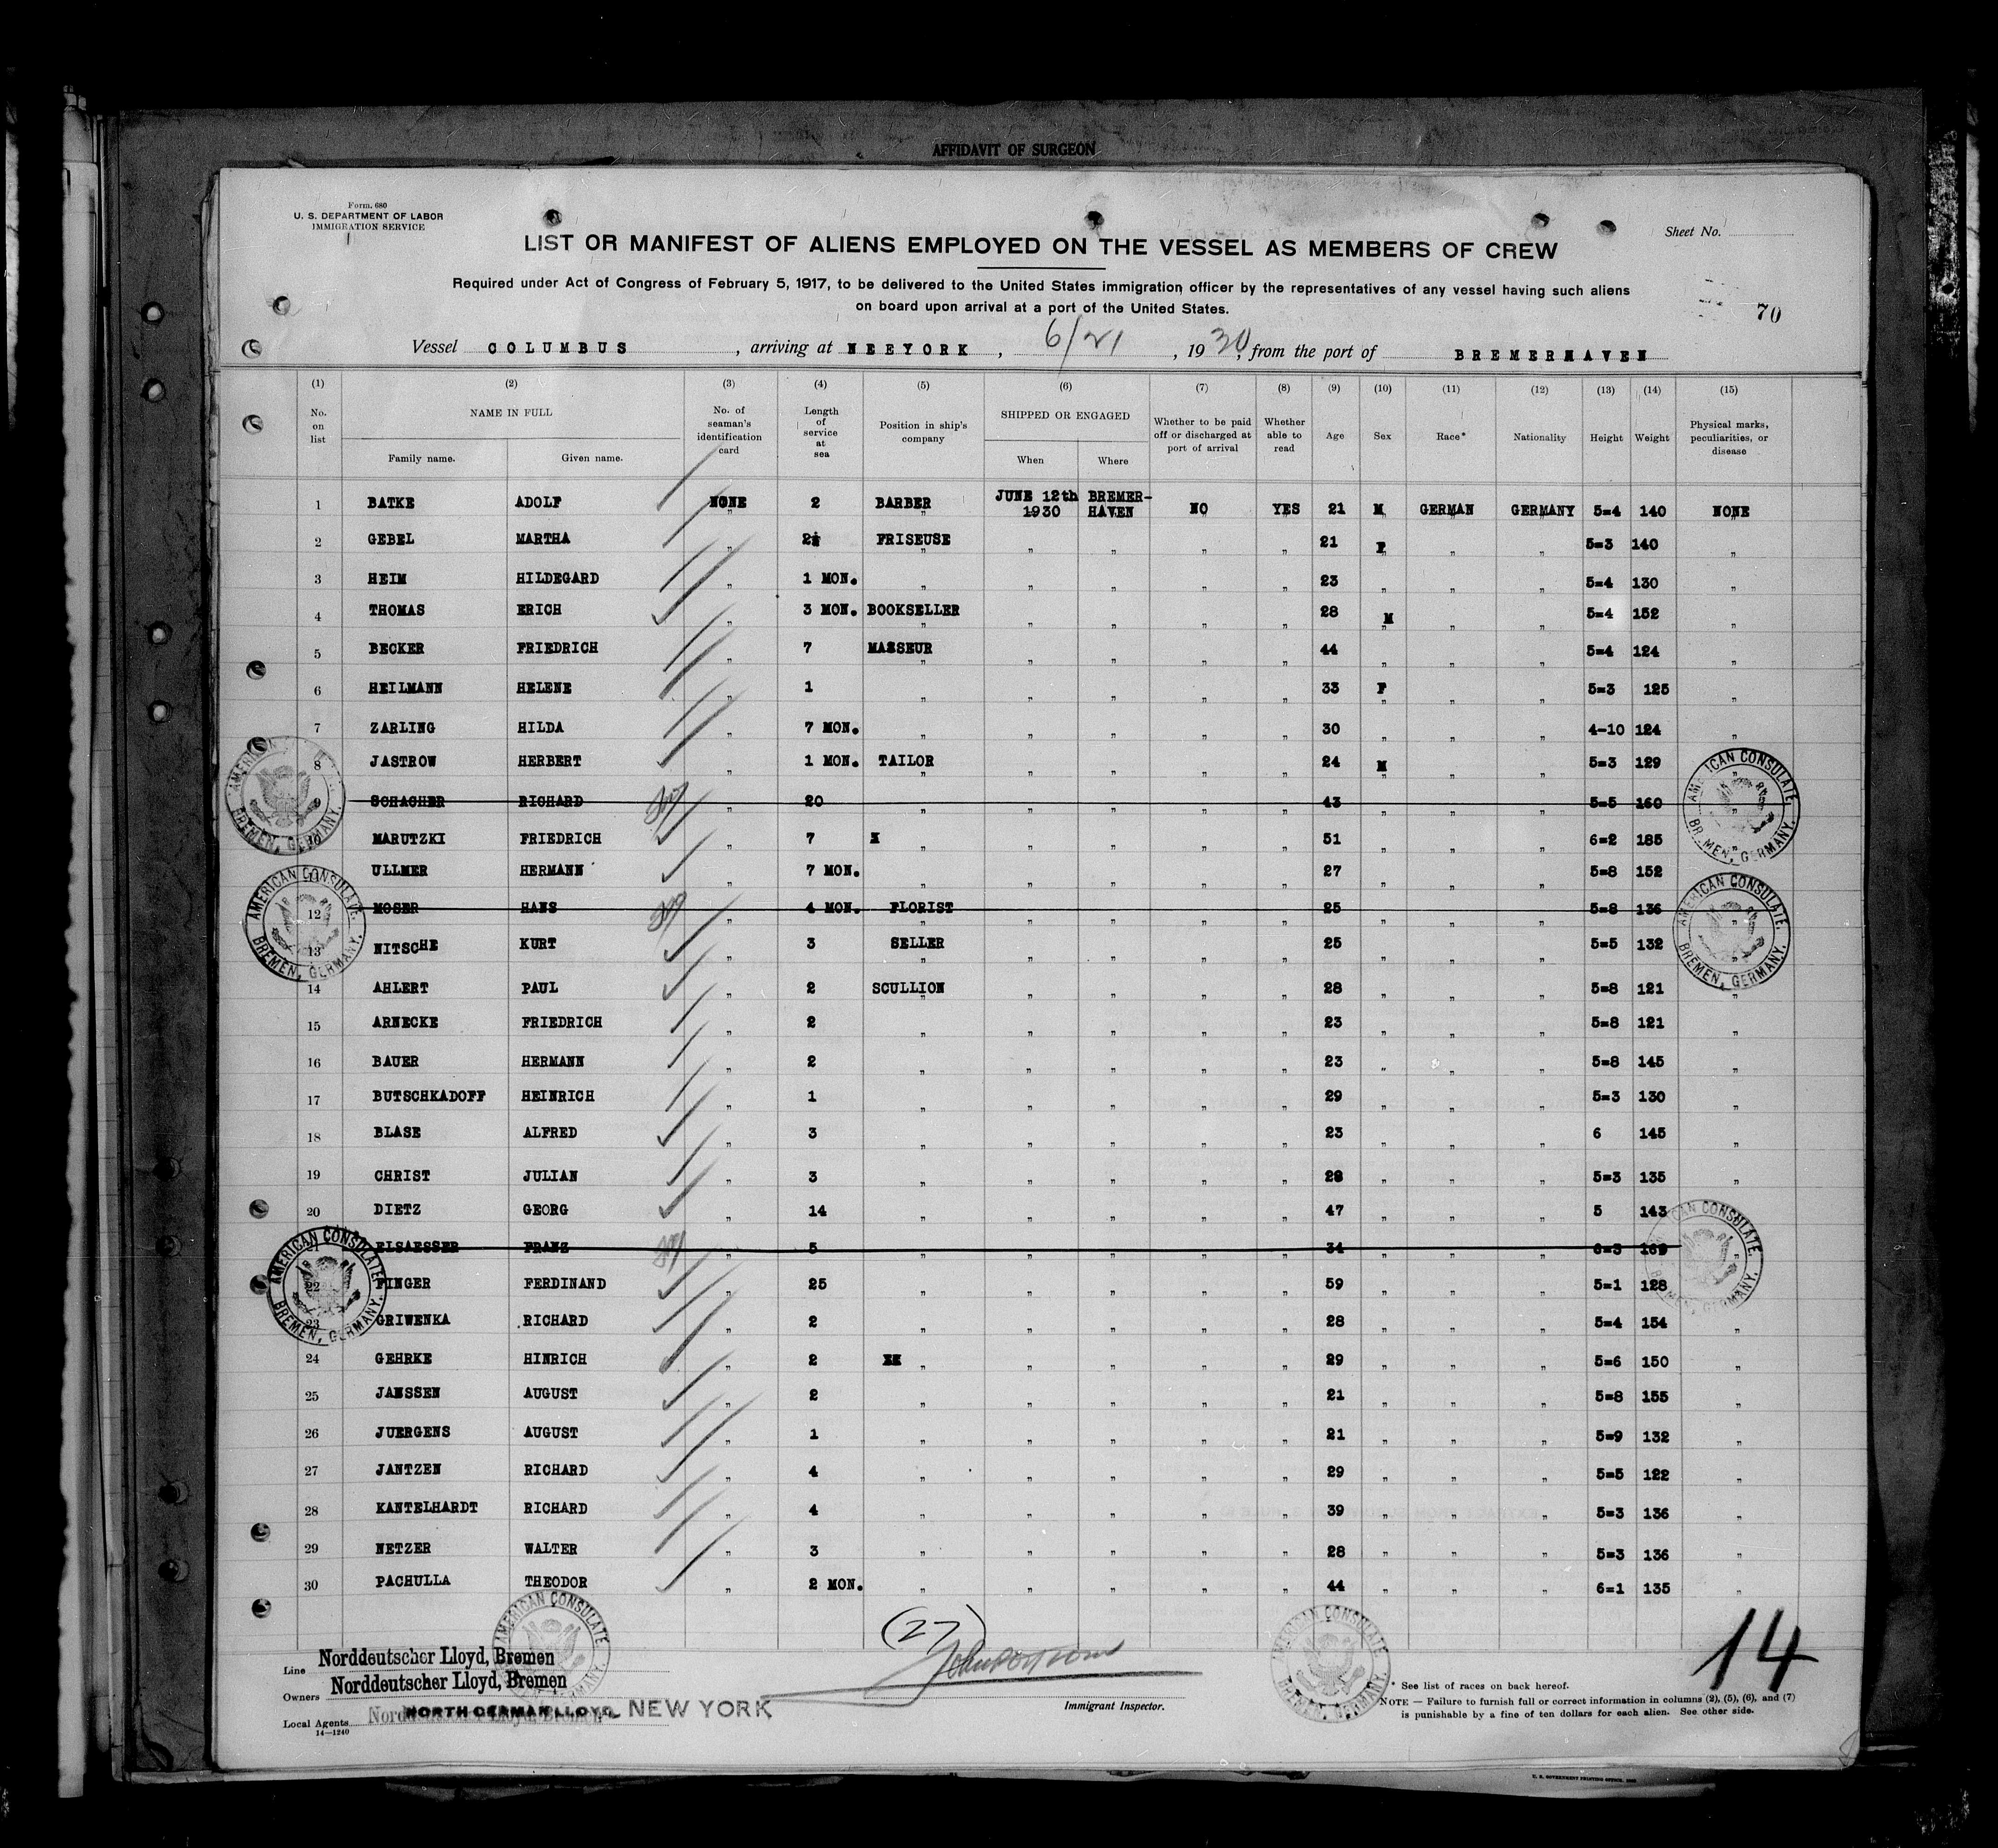 AFFIDAVIT OF SURGEON
Form. 680
U. S. DEPARTMENT OF LABOR
IMMIGRATION SERVICE
Sheet No.
LIST OR MANIFEST OF ALIENS EMPLOYED ON THE VESSEL AS MEMBERS OF CREW
Required under Act of Congress of February 5, 1917, to be delivered to the United States immigration officer by the representatives of any vessel having such aliens
on board upon arrival at a port of the United States.
70
Vessel COLUMBUS, arriving at NEEYORK, 6/21, 1930, from the port of BREMERHAVEN
(1) (2) (3) (4) (5) (6) (7) (8) (9) (10) (11) (12) (13) (14) (15)
No. on list NAME IN FULL Family name. Given name. No. of seaman's identification card Length of service at sea Position in ship's company SHIPPED OR ENGAGED When Where Whether to be paid off or discharged at port of arrival Whether able to read Age Sex Race* Nationality Height Weight Physical marks, peculiarities, or disease
1 BATKE ADOLF NONE 2 BARBER JUNE 12th 1930 BREMER-HAVEN NO YES 21 M GERMAN GERMANY 5=4 140 NONE
2 GEBEL MARTHA " FRISEUSE " " " " 21 F " " 5=3 140 "
3 HEIM HILDEGARD " 1 MON. " " " " " 23 " " " 5=4 130 "
4 THOMAS ERICH " 3 MON. BOOKSELLER " " " " 28 M " " 5=4 152 "
5 BECKER FRIEDRICH " 7 MASSEUR " " " " 44 " " " 5=4 124 "
6 HEILMANN HELENE " 1 " " " " " 33 F " " 5=3 125 "
7 ZARLING HILDA " 7 MON. " " " " " 30 " " " 4-10 124 "
8 JASTROW HERBERT " 1 MON. TAILOR " " " " 24 M " " 5=3 129 "
SCHACHER RICHARD " 20 " " " " " 43 " " " 5=5 160 "
MARUTZKI FRIEDRICH " 7 X " " " " 51 " " " 6=2 185 "
11 ULLMER HERMANN " 7 MON. " " " " " 27 " " " 5=8 152 "
12 MOSER HANS " 4 MON. FLORIST " " " " 25 " " " 5=8 136 "
13 NITSCHE KURT " 3 SELLER " " " " 25 " " " 5=5 132 "
14 AHLERT PAUL " 2 SCULLION " " " " 28 " " " 5=8 121 "
15 ARNECKE FRIEDRICH " 2 " " " " " 23 " " " 5=8 121 "
16 BAUER HERMANN " 2 " " " " " 23 " " " 5=8 145 "
17 BUTSCHKADOFF HEINRICH " 1 " " " " " 29 " " " 5=3 130 "
18 BLASE ALFRED " 3 " " " " " 23 " " " 6 145 "
19 CHRIST JULIAN " 3 " " " " " 28 " " " 5=3 135 "
20 DIETZ GEORG " 14 " " " " " 47 " " " 5 143 "
21 ELSAESSER FRANZ " 5 " " " " " 34 " " " 6=3 169 "
22 FINGER FERDINAND " 25 " " " " " 59 " " " 5=1 128 "
23 GRIWENKA RICHARD " 2 " " " " " 28 " " " 5=4 154 "
24 GEHRKE HINRICH " 2 " " " " " 29 " " " 5=6 150 "
25 JANSSEN AUGUST " 2 " " " " " 21 " " " 5=8 155 "
26 JUERGENS AUGUST " 1 " " " " " 21 " " " 5=9 132 "
27 JANTZEN RICHARD " 4 " " " " " 29 " " " 5=5 122 "
28 KANTELHARDT RICHARD " 4 " " " " " 39 " " " 5=3 136 "
29 NETZER WALTER " 3 " " " " " 28 " " " 5=3 136 "
30 PACHULLA THEODOR " 2 MON. " " " " " 44 " " " 6=1 135 "
AMERICAN CONSULATE. BREMEN, GERMANY.
AMERICAN CONSULATE. BREMEN, GERMANY.
AMERICAN CONSULATE. BREMEN, GERMANY.
AMERICAN CONSULATE. BREMEN, GERMANY.
AMERICAN CONSULATE. BREMEN, GERMANY.
AMERICAN CONSULATE. BREMEN, GERMANY.
AMERICAN CONSULATE. BREMEN, GERMANY.
AMERICAN CONSULATE. BREMEN, GERMANY.
(27)
14
Line Norddeutscher Lloyd, Bremen
Owners Norddeutscher Lloyd, Bremen
Local Agents Norddeutscher Lloyd, Bremen NORTH GERMAN LLOYD NEW YORK
14—1240
Immigrant Inspector.
* See list of races on back hereof.
NOTE — Failure to furnish full or correct information in columns (2), (5), (6), and (7)
is punishable by a fine of ten dollars for each alien. See other side.